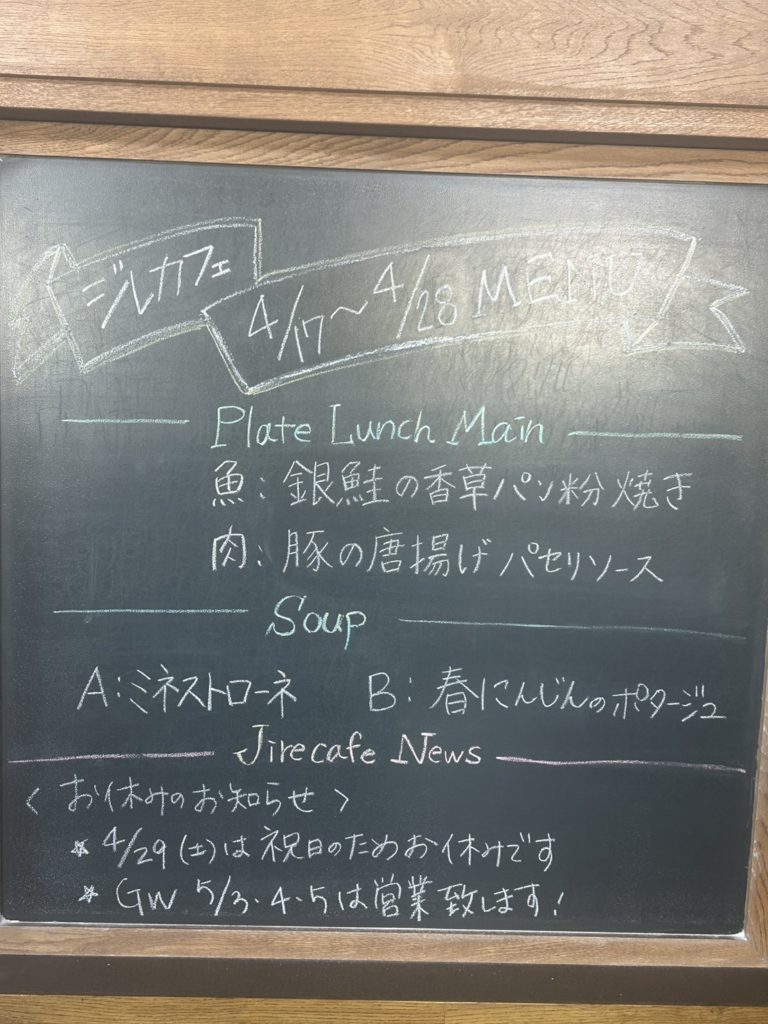 ジルカフェ
4/17～4/28 MENU
Plate Lunch Main
魚：銀鮭の香草パン粉焼き
肉：豚の唐揚げ パセリソース
Soup
A：ミネストローネ B：春にんじんのポタージュ
Jirecafe News
〈 お休みのお知らせ 〉
☆ 4/29（土）は祝日のためお休みです
☆ GW 5/3・4・5は営業致します！